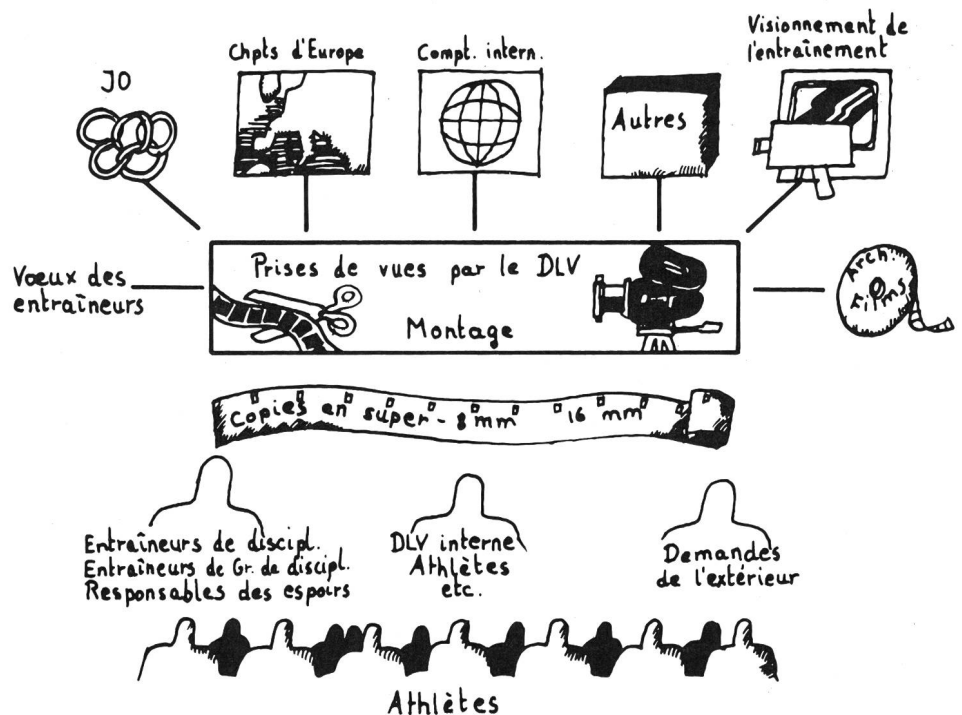 JO
Chpts d'Europe
Compt. intern.
Autres
Visionnement de
l'entraînement
Vœux des
entraîneurs
Prises de vues par le DLV
Montage
Arch.
Films
Copies en super-8mm 16 mm
Entraîneurs de discipl.
Entraîneurs de Gr. de discipl.
Responsables des espoirs
DLV interne
Athlètes
etc.
Demandes
de l'extérieur
Athlètes